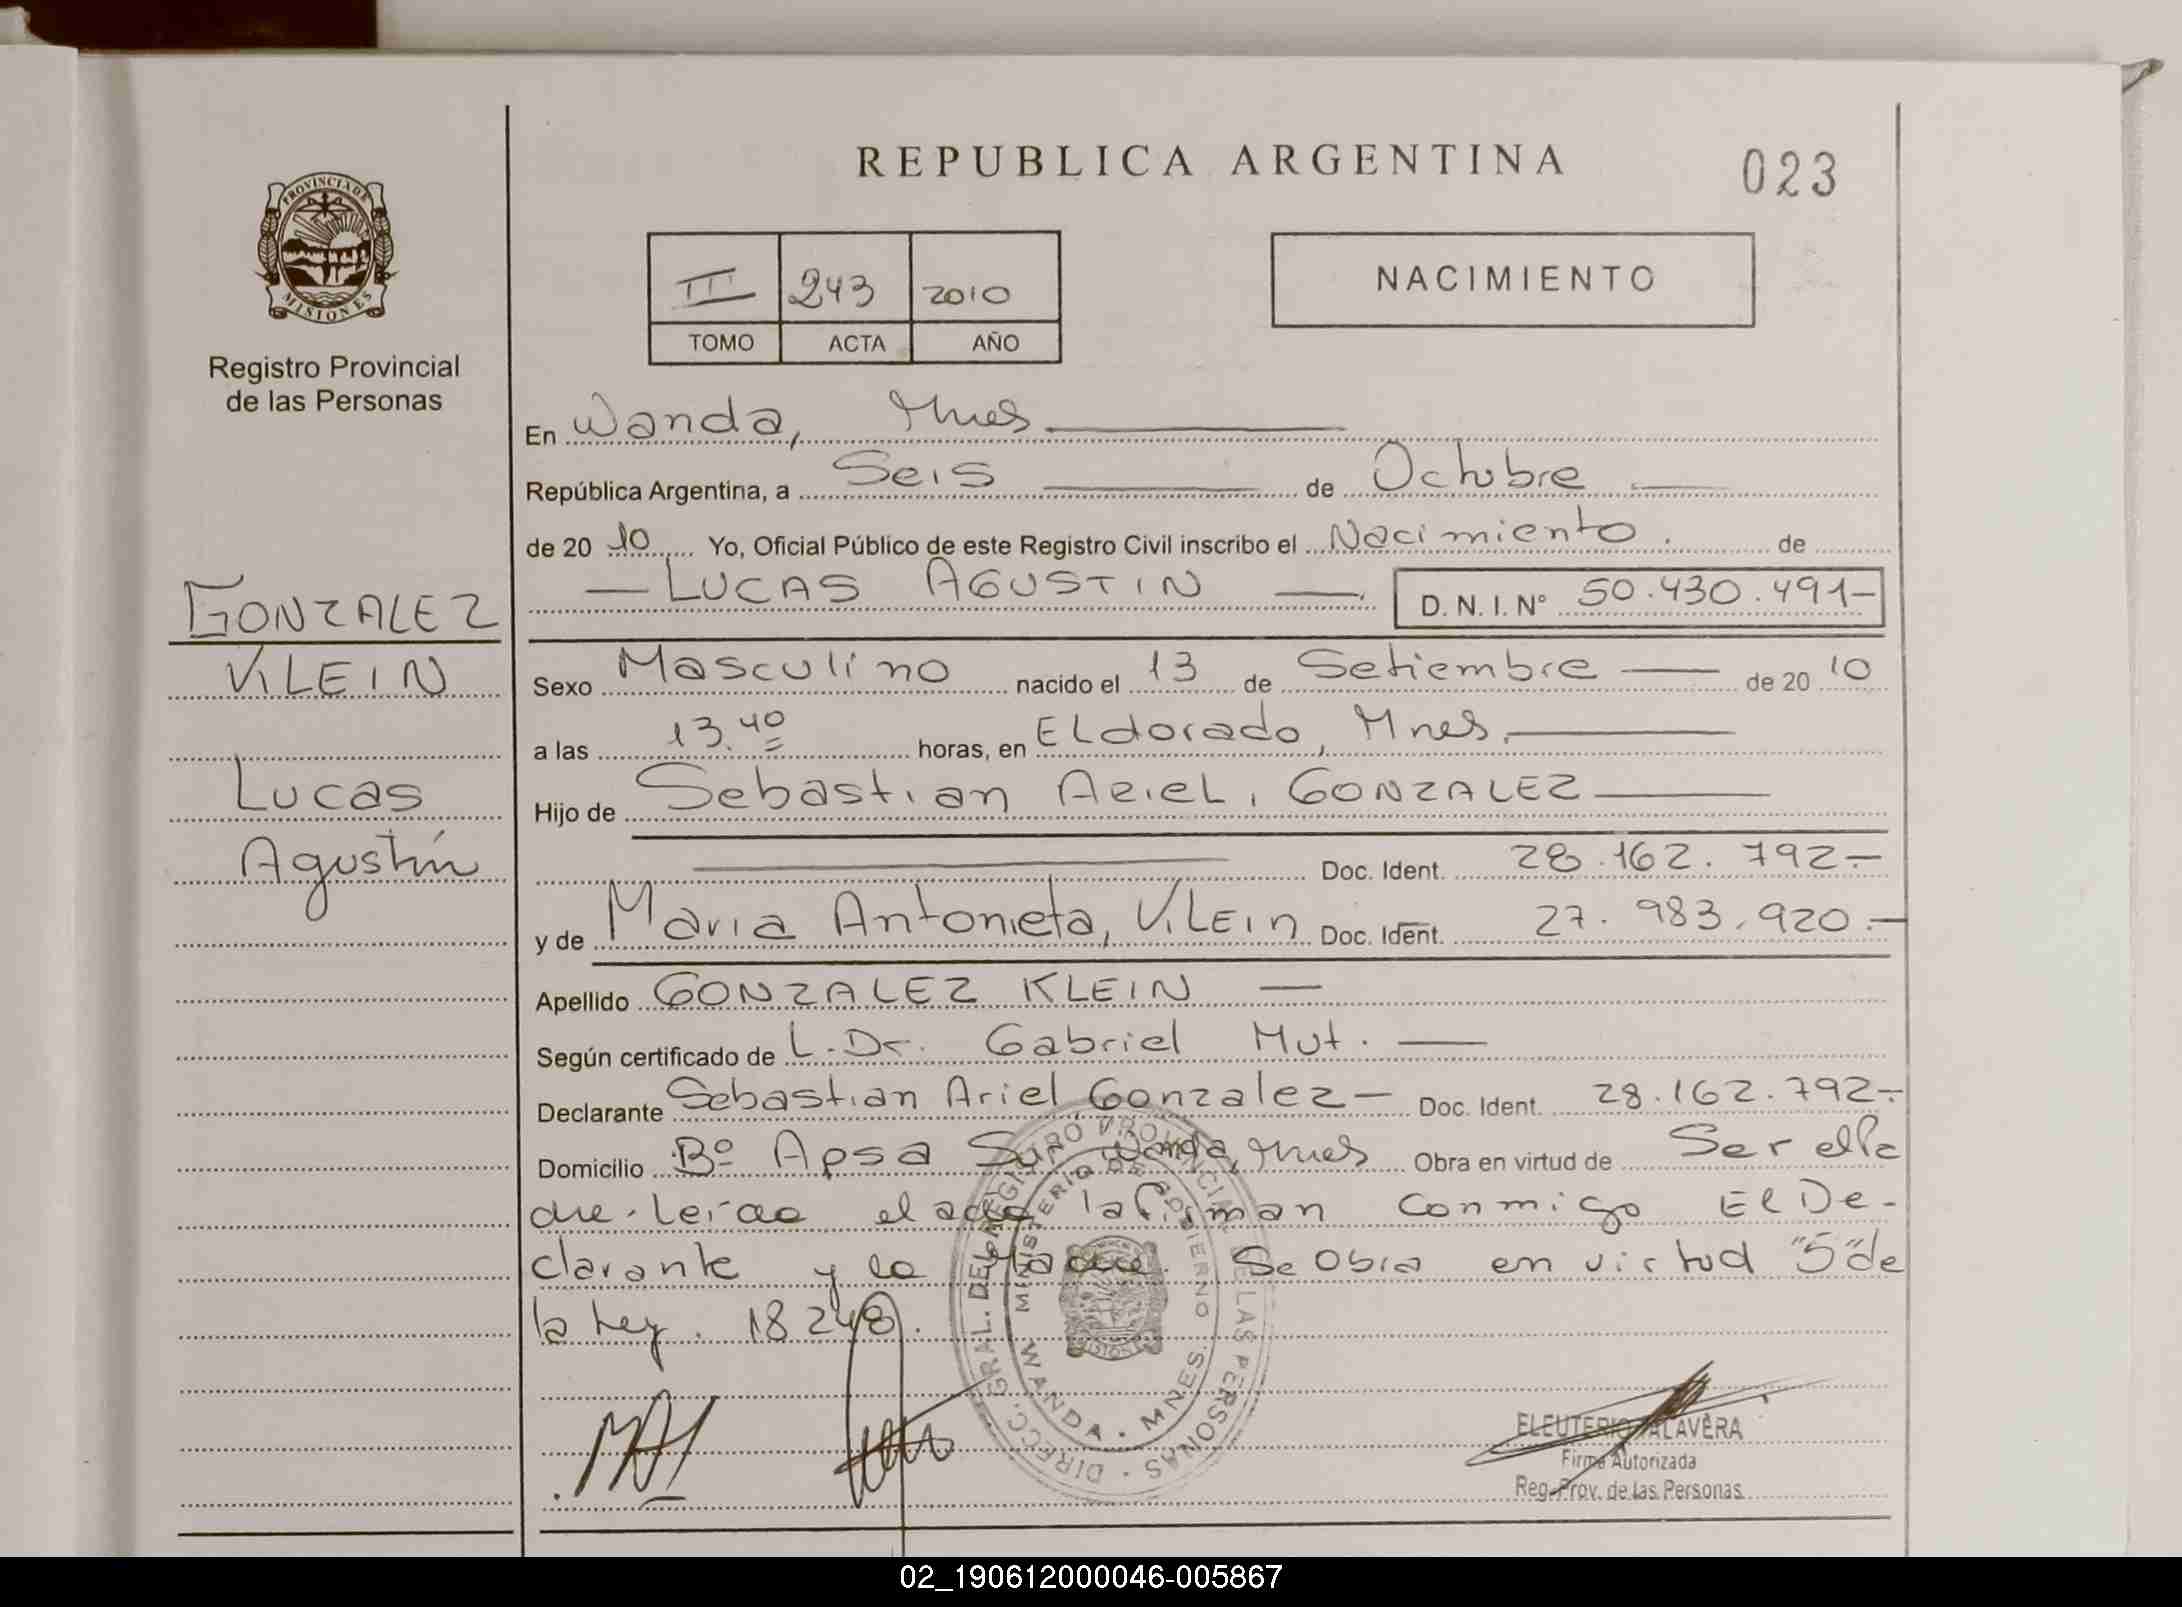 REPUBLICA ARGENTINA
023
PROVINCIA DE
MISIONES
Registro Provincial
de las Personas
III 243 2010
TOMO ACTA AÑO
NACIMIENTO
En Wanda, Mnes
República Argentina, a Seis de Octubre
de 20 10 Yo, Oficial Público de este Registro Civil inscribo el Nacimiento. de
— LUCAS AGUSTIN — D. N. I. Nº 50.430.491-
GONZALEZ
KLEIN
Lucas
Agustín
Sexo Masculino nacido el 13 de Setiembre — de 20 10
a las 13.40 horas, en Eldorado, Mnes.
Hijo de Sebastian Ariel, GONZALEZ
Doc. Ident. 28.162.792-
y de Maria Antonieta, KLEIN Doc. Ident. 27.983.920.-
Apellido GONZALEZ KLEIN —
Según certificado de L. Dr. Gabriel Mut. —
Declarante Sebastian Ariel Gonzalez — Doc. Ident. 28.162.792.-
Domicilio Bº Apsa Sur Wanda, Mnes Obra en virtud de Ser el
el acta la firman conmigo El De-
clarante y la Madre. Se Obra en virtud "5" de
la Ley. 18248.
DIRECC. GRAL. DEL REGISTRO PROVINCIAL DE LAS PERSONAS
MINISTERIO DE GOBIERNO
WANDA - MNES.
ELEUTERIO TALAVERA
Firma Autorizada
Reg. Prov. de las Personas
02_190612000046-005867